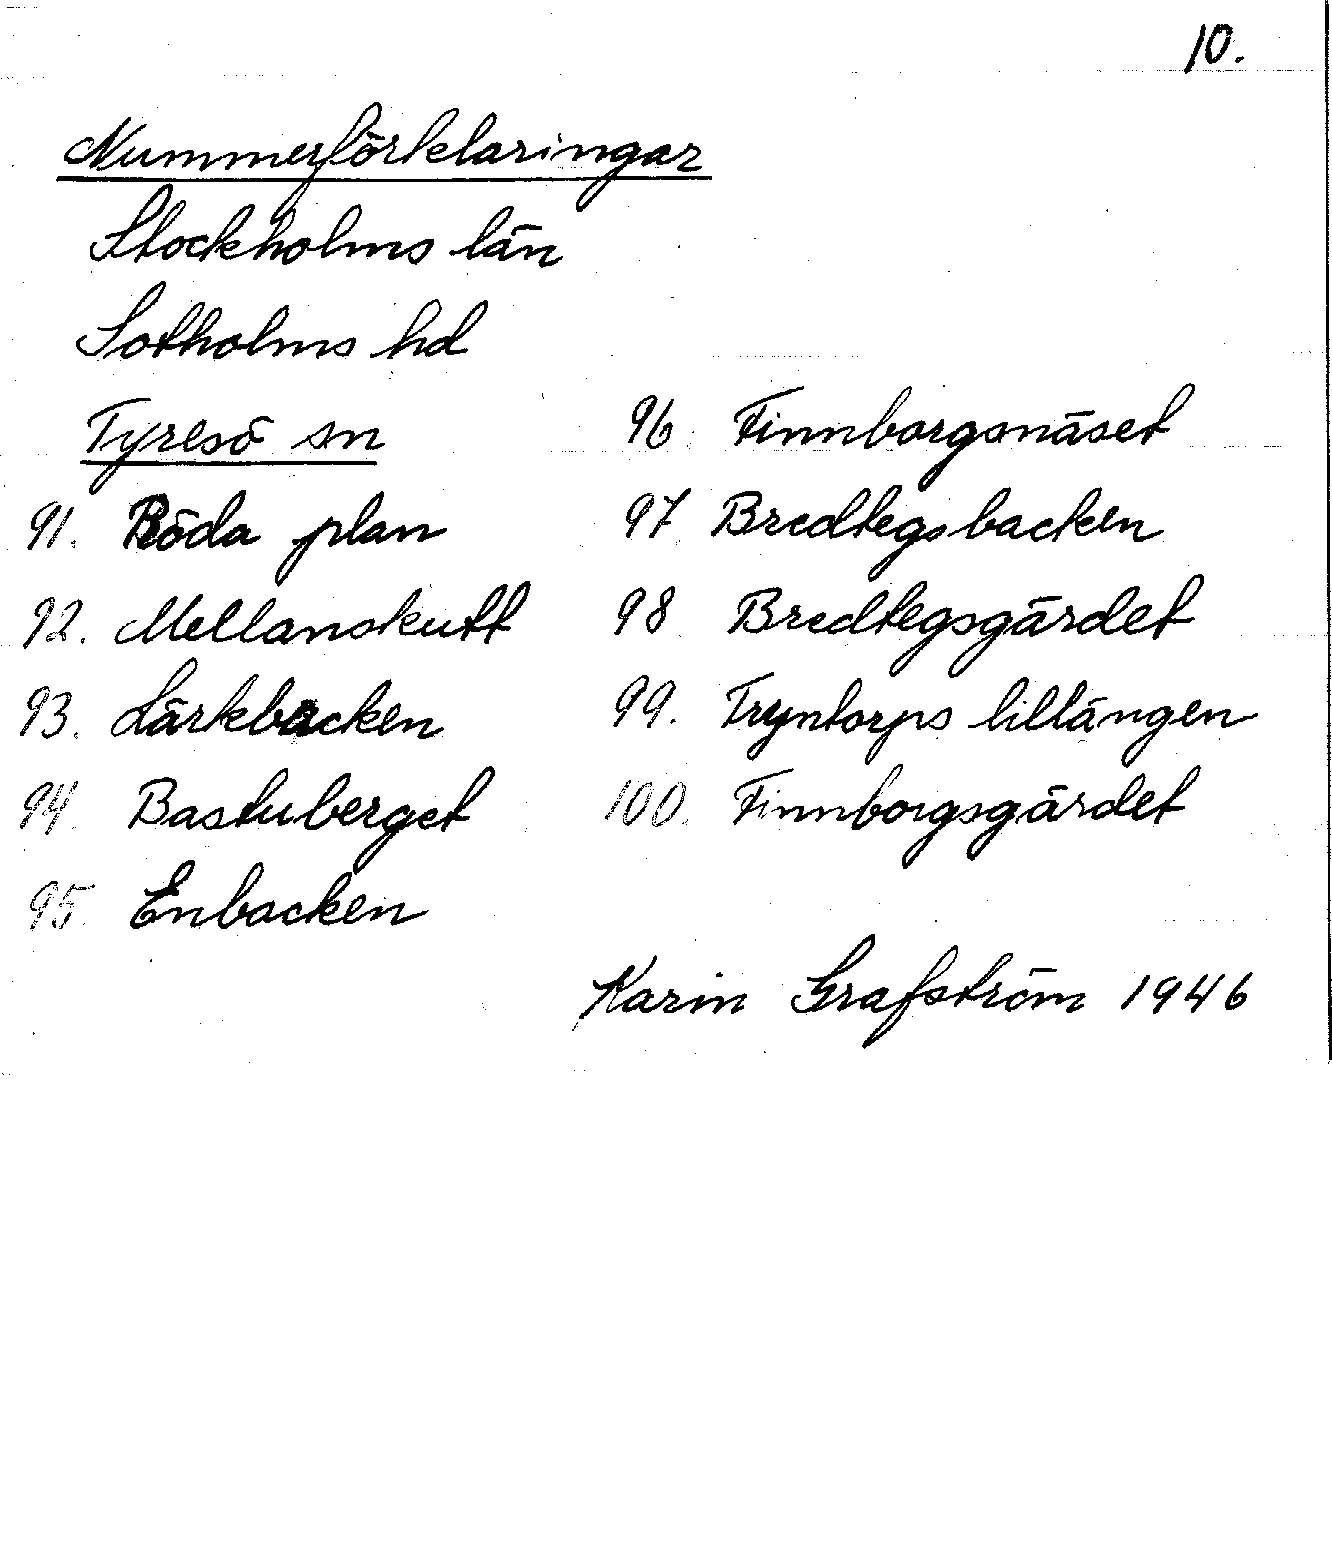 10.
Nummerförklaringar
Stockholms län
Sotholms hd
Tyresö sn
91. Röda plan
92. Mellanskutt
93. Lärkbacken
94 Bastuberget
95 Enbacken
96 Finnborgsnäset
97 Bredtegsbacken
98 Bredtegsgärdet
99. Tryntorps lillängen
100. Finnborgsgärdet
Karin Grafström 1946